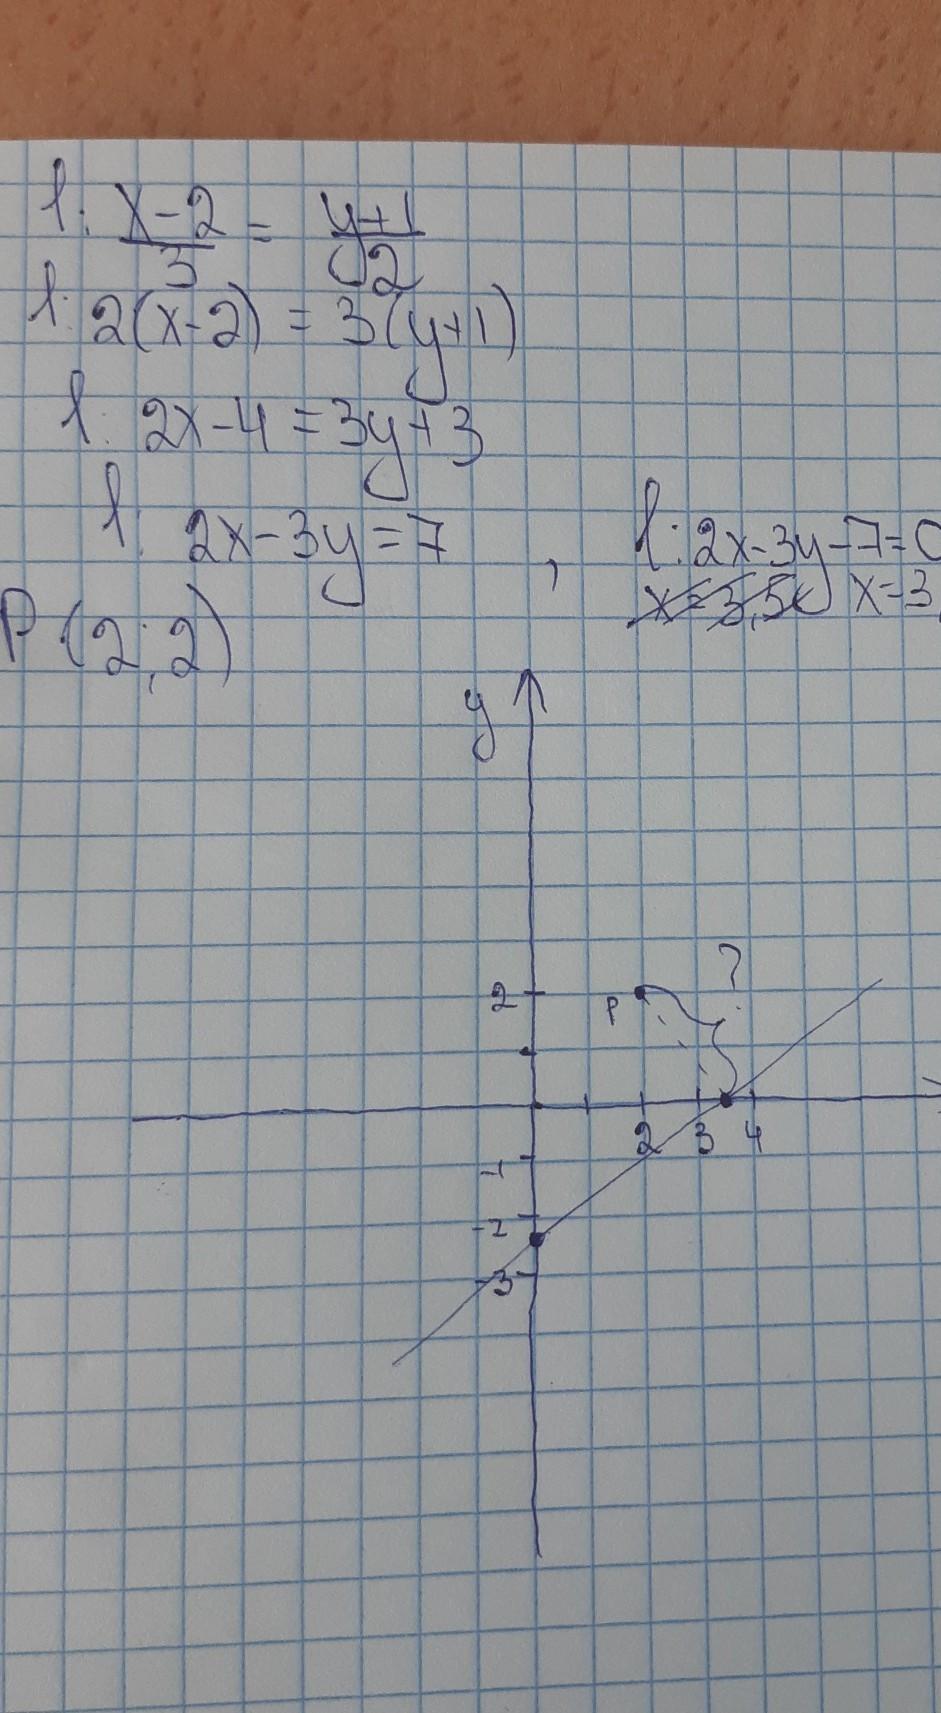 l: x-2/3 = y+1/2
l: 2(x-2) = 3(y+1)
l: 2x-4 = 3y+3
l: 2x-3y=7 , l: 2x-3y-7=0
x=3,5 x=3,
P(2;2)
y
?
2
P
2 3 4
-1
-2
-3